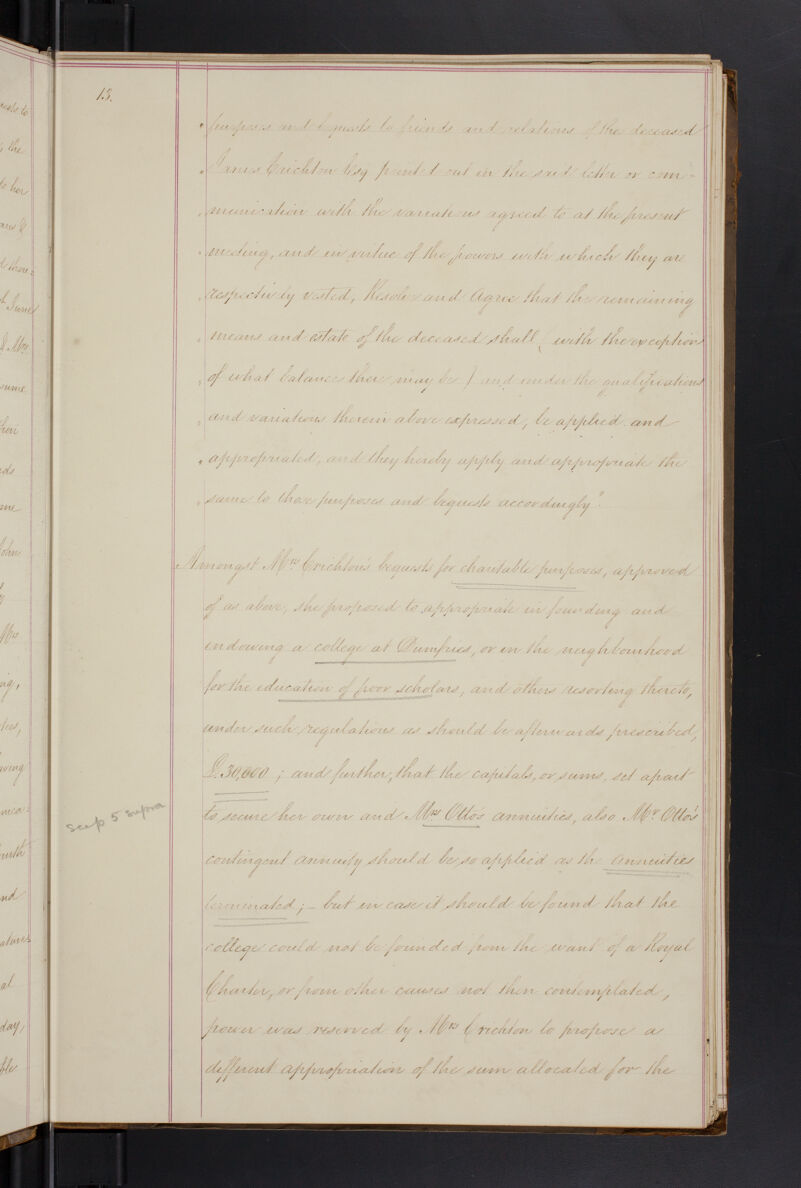 13.
" purposes and bequests to friends and relations of the deceased
" James Crichton Esq pointed out in the said letter or com-
" munication with the variations agreed to at the present
" meeting, and in virtue of the powers with which they are
" respectively vested, Resolve and Agree that the remaining
" means and estate of the deceased shall (with the exception
" of what balances there may be) and under the qualifications
" and variations therein above expressed, be applied and
" appropriated, and they hereby apply and appropriate the
" same to those purposes and bequests accordingly".
Amongst Mrs Crichton's bequests for charitable purposes, approved
of as above, she proposed to appropriate in founding and
endowing a college at Dumfries, or in the neighbourhood
for the education of poor scholars, and others resorting thereto,
under such regulations as should be afterwards prescribed,
£30,000; and further, that the capitals, or sums, set apart
to secure her own and Mrs Otto's annuities, also Mr Otto's
contingent annuity should be so applied as the annuities
terminated; – but in case it should be found that the
college could not be founded from the want of a Royal
Charter, or from other causes not then contemplated,
power was reserved by Mrs Crichton to propose a
different appropriation of the sum allocated for the
see p 5 supra